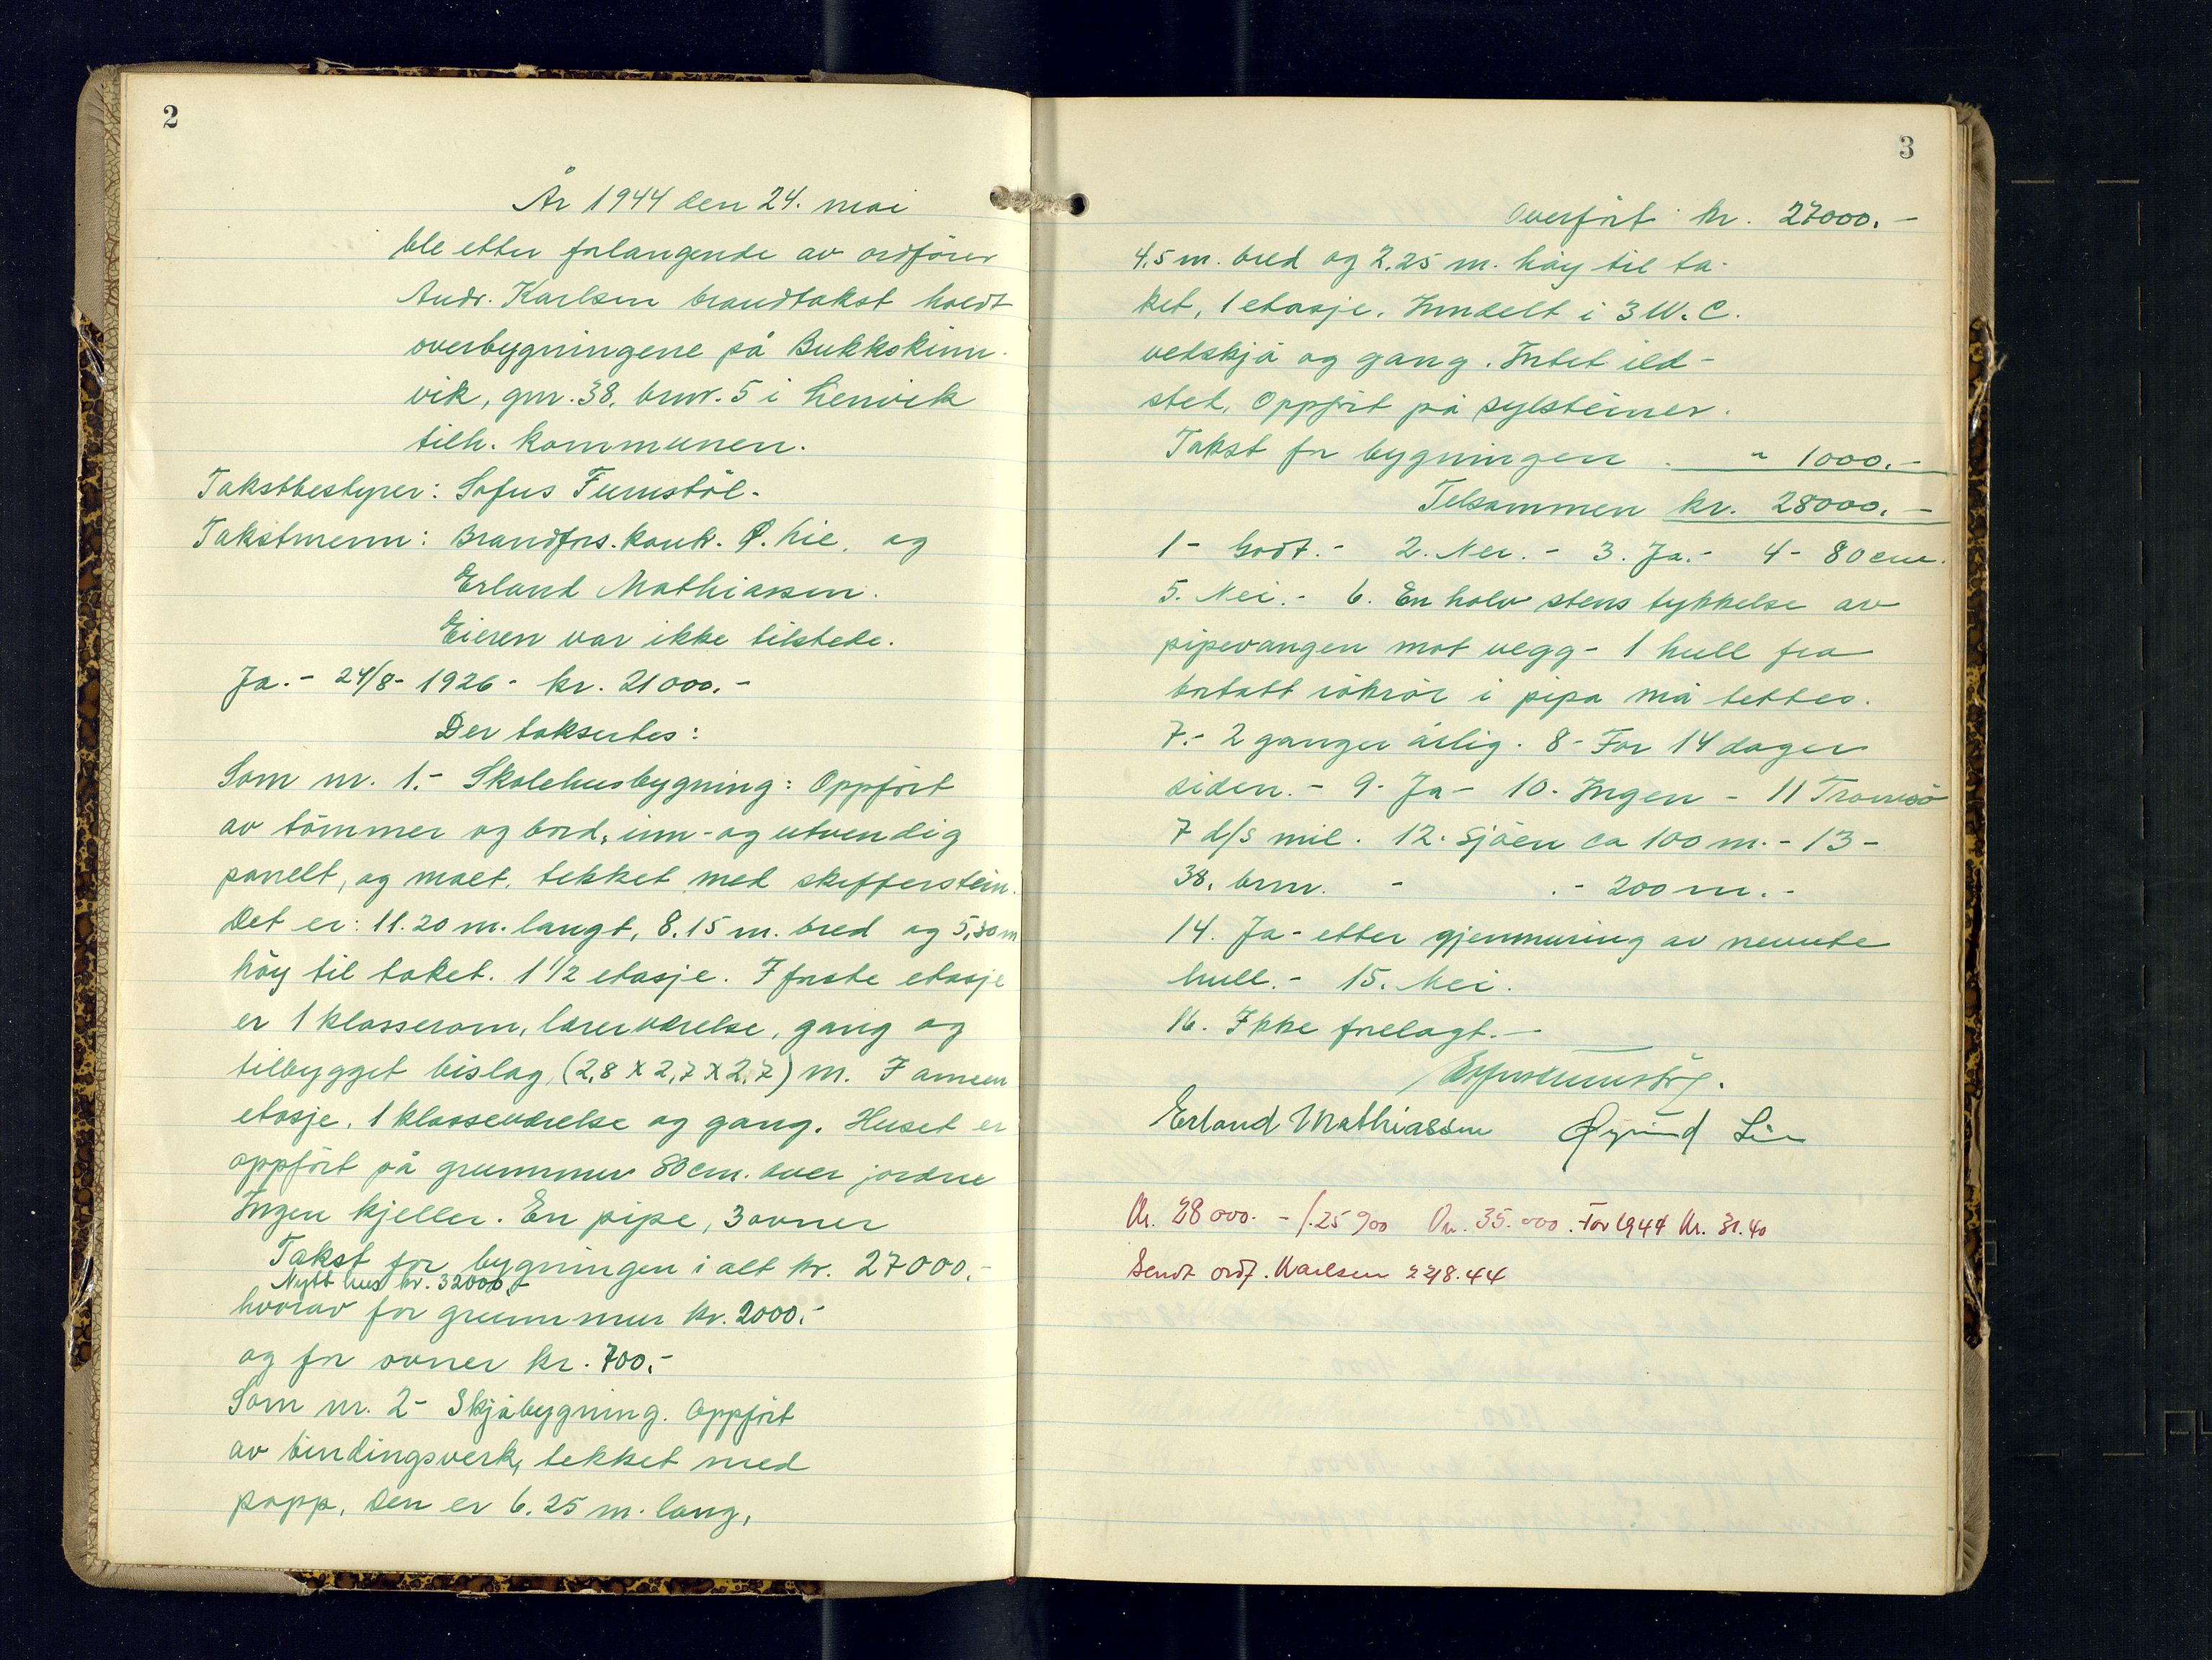 2
År 1944 den 24. mai
ble etter forlangende av ordfører
Andr. Karlsen brandtakst holdt
overbygningene på Bukkskinn-
vik, gnr. 38, brnr. 5 i Lenvik
tilh. kommunen.
Takstbestyrer: Sofus Furustöl.
Takstmenn: Brandfors. konk. Ø. Lie, og
Erland Mathiassen.
Eieren var ikke tilstede.
Ja. - 24/8 - 1926 - kr. 21000.-
Der taksertes:
Som nr. 1. - Skolehusbygning: Oppfört
av tömmer og bord, inn- og utvendig
panelt, og malt, tekket med skifferstein.
Det er: 11.20 m. langt, 8.15 m. bred og 5,30 m
höy til taket. 1 1/2 etasje. I förste etasje
er 1 klasserom, lærerværelse, gang og
tilbygget bislag, (2,8 X 2,7 X 2,7) m. I annen
etasje, 1 klasseværelse og gang. Huset er
oppfört på grunnmur 80 cm. over jorden
Ingen kjeller. En pipe, 3 ovner
Takst for bygningen i alt kr. 27000.-
Nytt hus kr. 32000.-
hvorav for grunnmur kr. 2000.-
og for ovner kr. 700.-
Som nr. 2 - Skjåbygning. Oppfört
av bindingsverk, tekket med
papp, Den er 6.25 m. lang,
3
Overfört kr. 27000.-
4,5 m. bred og 2.25 m. höy til ta-
ket, 1 etasje. Inndelt i 3 W.C.
vedskjå og gang. Intet ild-
sted, Oppfört på sylsteiner.
Takst for bygningen . " 1000.-
Tilsammen kr. 28000.-
1 - Godt. - 2. Nei. - 3. Ja. - 4 - 80 cm.
5. Nei. - 6. En halv stens tykkelse av
pipevangen mot vegg - 1 hull fra
bortatt rökrör i pipa må tettes.
7. - 2 ganger årlig. 8 - For 14 dager
siden. - 9 - Ja - 10 - Ingen - 11 Tromsö
7 d/s mil. 12. Sjöen ca 100 m. - 13 -
38. brnr. - . - 200 m. -
14. Ja - etter gjenmuring av nevnte
hull. - 15. Nei.
16. Ikke forelagt. -
Sofus Furustöl.
Erland Mathiassen Øyvind Lie
Kr. 28 000. - /. 25 900 Pr. 35. 000. For 1944 Kr. 31.40
Sendt ordf. Karlsen 22/8.44